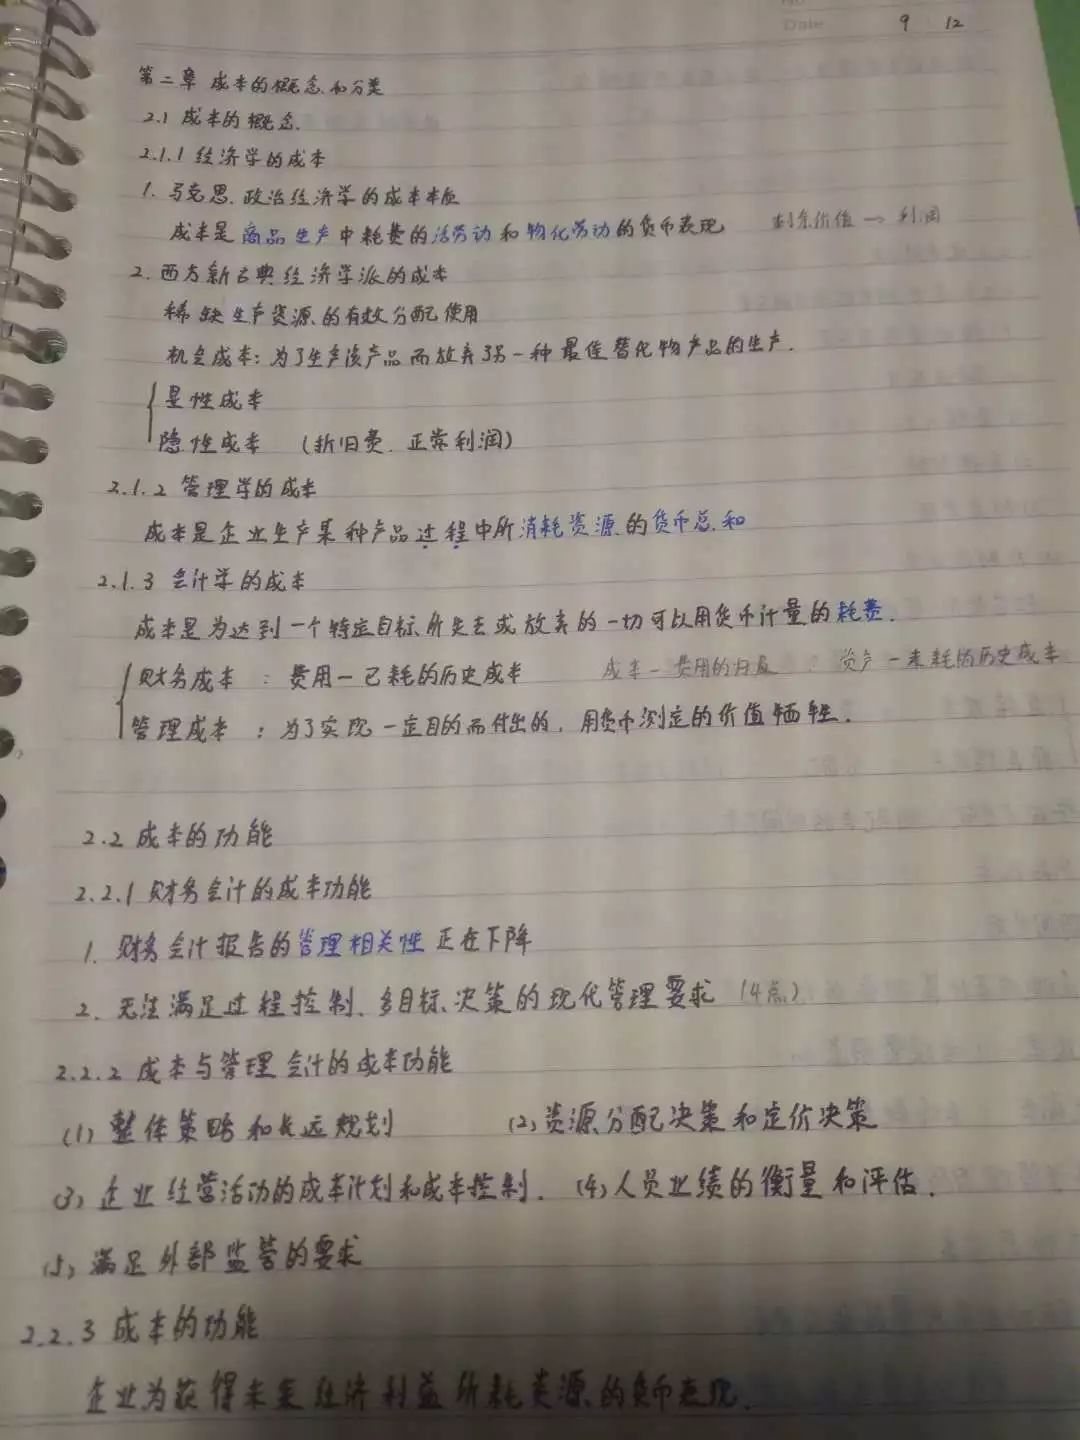 No
Date 9 12
第二章 成本的概念和分类
2.1 成本的概念.
2.1.1 经济学的成本
1. 马克思.政治经济学的成本本质
成本是商品生产中耗费的活劳动和物化劳动的货币表现 剩余价值→利润
2. 西方新古典经济学派的成本
稀缺生产资源的有效分配使用
机会成本:为了生产该产品而放弃了另一种最佳替代物产品的生产.
显性成本
隐性成本 (折旧费.正常利润)
2.1.2 管理学的成本
成本是企业生产某种产品过程中所消耗资源的货币总和
2.1.3 会计学的成本
成本是为达到一个特定目标所失去或放弃的一切可以用货币计量的耗费.
财务成本 : 费用—已耗的历史成本 成本—费用的归 : 资产—未耗的历史成本
管理成本 : 为了实现一定目的而付出的,用货币测定的价值牺牲.
2.2 成本的功能
2.2.1 财务会计的成本功能
1. 财务会计报告的管理相关性正在下降
2. 无法满足过程控制、多目标、决策的现代管理要求 (4点)
2.2.2 成本与管理会计的成本功能
(1) 整体策略和长远规划 (2) 资源分配决策和定价决策
(3) 企业经营活动的成本计划和成本控制. (4) 人员业绩的衡量和评估.
(5) 满足外部监管的要求
2.2.3 成本的功能
企业为获得未来经济利益所耗资源的货币表现.